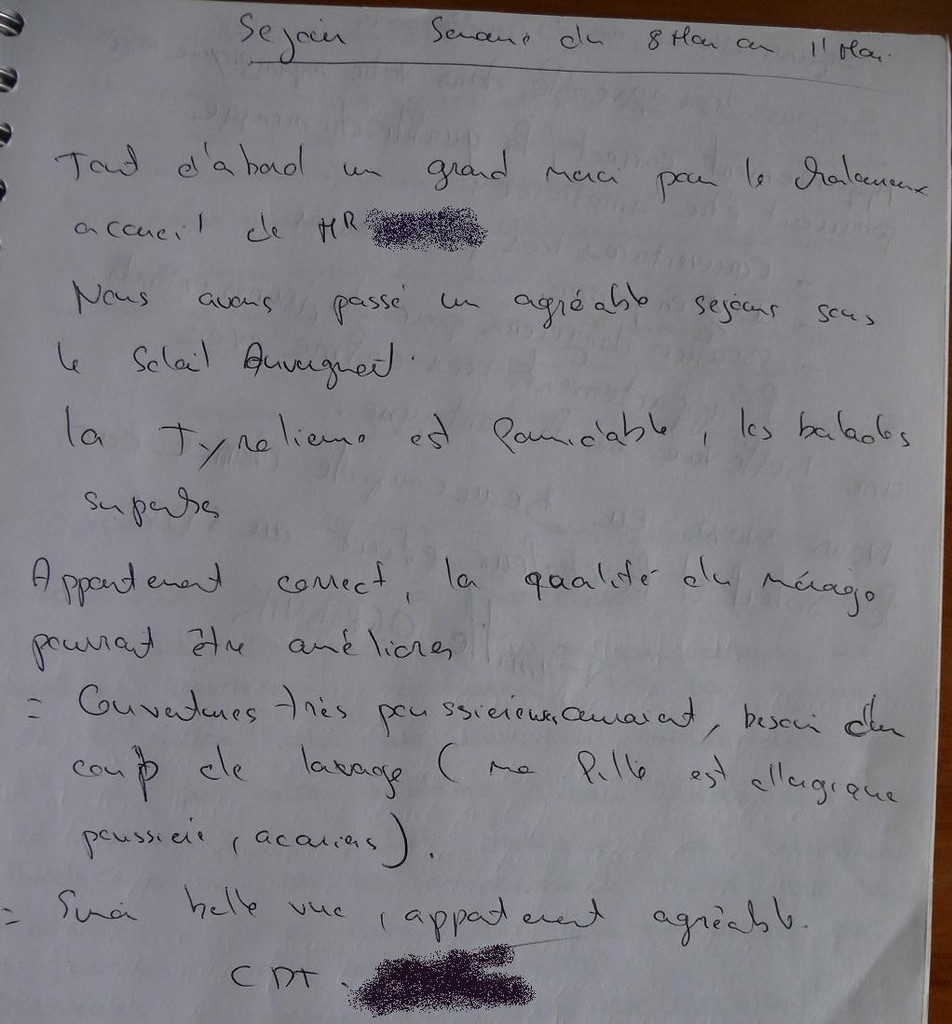 Sejour Semaine du 8 Mai au 11 Mai.
Tout d'abord un grand merci pour le chaleureux
accueil de MR
Nous avons passé un agréable sejour sous
le Soleil Auvergnat.
la Tyrolienne est formidable, les balades
superbes
Appartement correct, la qualité du ménage
pourrait être améliorer
= Couvertures très poussiereuses, besoin d'un
coup de lavage (ma fille est allergique
poussiere, acariens).
= Sinon belle vue, appartement agréable.
CDT.